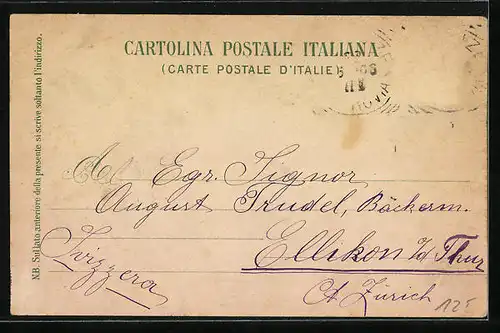 CARTOLINA POSTALE ITALIANA
(CARTE POSTALE D'ITALIE)
N.B. Sul lato anteriore della presente si scrive soltanto l'indirizzo.
Al Egr. Signor
August Trudel, Bäckerm.
Ellikon a/d Thur
Ct. Zürich
Svizzera
125